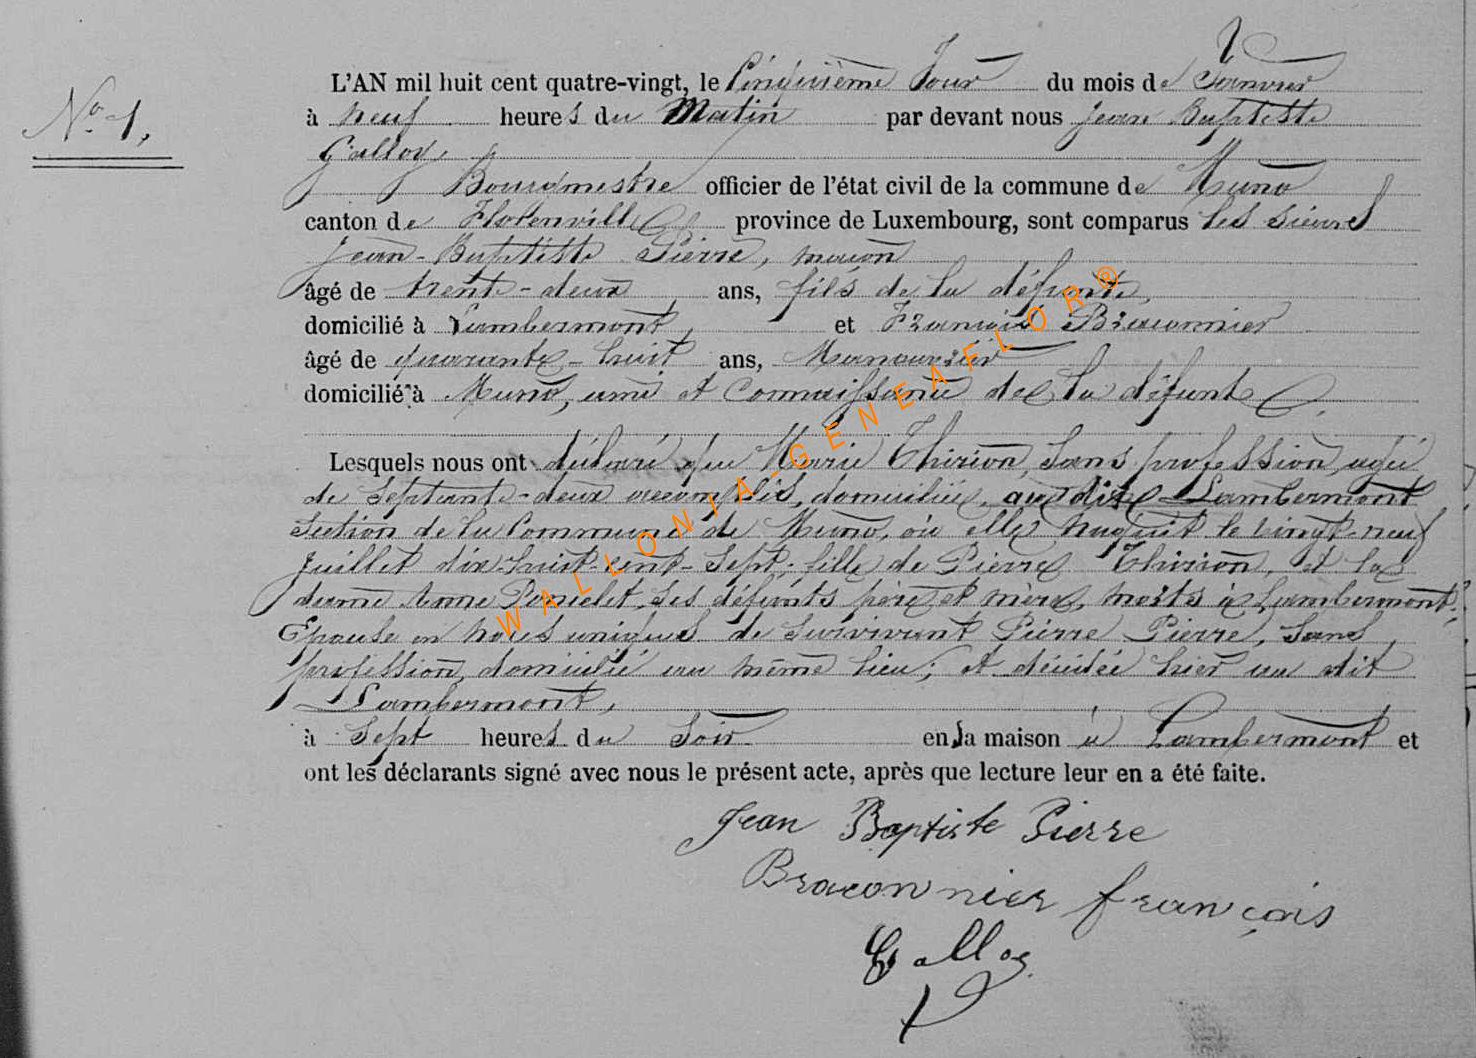 No 1,
L'AN mil huit cent quatre-vingt, le Cinquième Jour du mois de Janvier
à neuf heures du Matin par devant nous Jean Baptiste
Galloy
Bourgmestre officier de l'état civil de la commune de Muno
canton de Florenville province de Luxembourg, sont comparus les sieurs
Jean-Baptiste Pierre, maçon
âgé de trente-deux ans, fils de la défunte,
domicilié à Lambermont, et François Braconnier
âgé de quarante-huit ans, Manouvrier
domicilié à Muno, ami et connaissance de la défunte
Lesquels nous ont déclaré que Marie Thirion, sans profession, agée
de septante-deux accomplis, domiciliée au dit Lambermont
section de la Commune de Muno, où elle naquit le vingt-neuf
Juillet dix-huit-cent-sept; fille de Pierre Thirion, et la
dame Anne Poncelet, ses défunts père et mère, morts à Lambermont;
Epouse en noces uniques de survivant Pierre Pierre, sans
profession, domicilié au même lieu; et décédée hier au dit
Lambermont,
à sept heures du Soir en la maison à Lambermont et
ont les déclarants signé avec nous le présent acte, après que lecture leur en a été faite.
Jean Baptiste Pierre
Braconnier françois
Galloy
WALLONIA-GENEAFLOR®